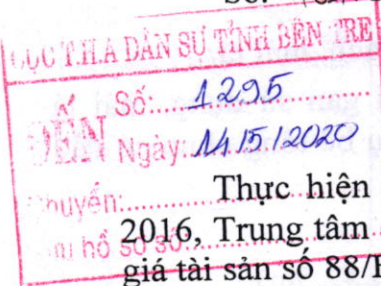 Số:
CỤC T.H.A DÂN SỰ TỈNH BẾN TRE
ĐẾN
Số: 1295
Ngày: 14/5/2020
Chuyển:
Thực hiện
hồ sơ số:
2016, Trung tâm
giá tài sản số 88/